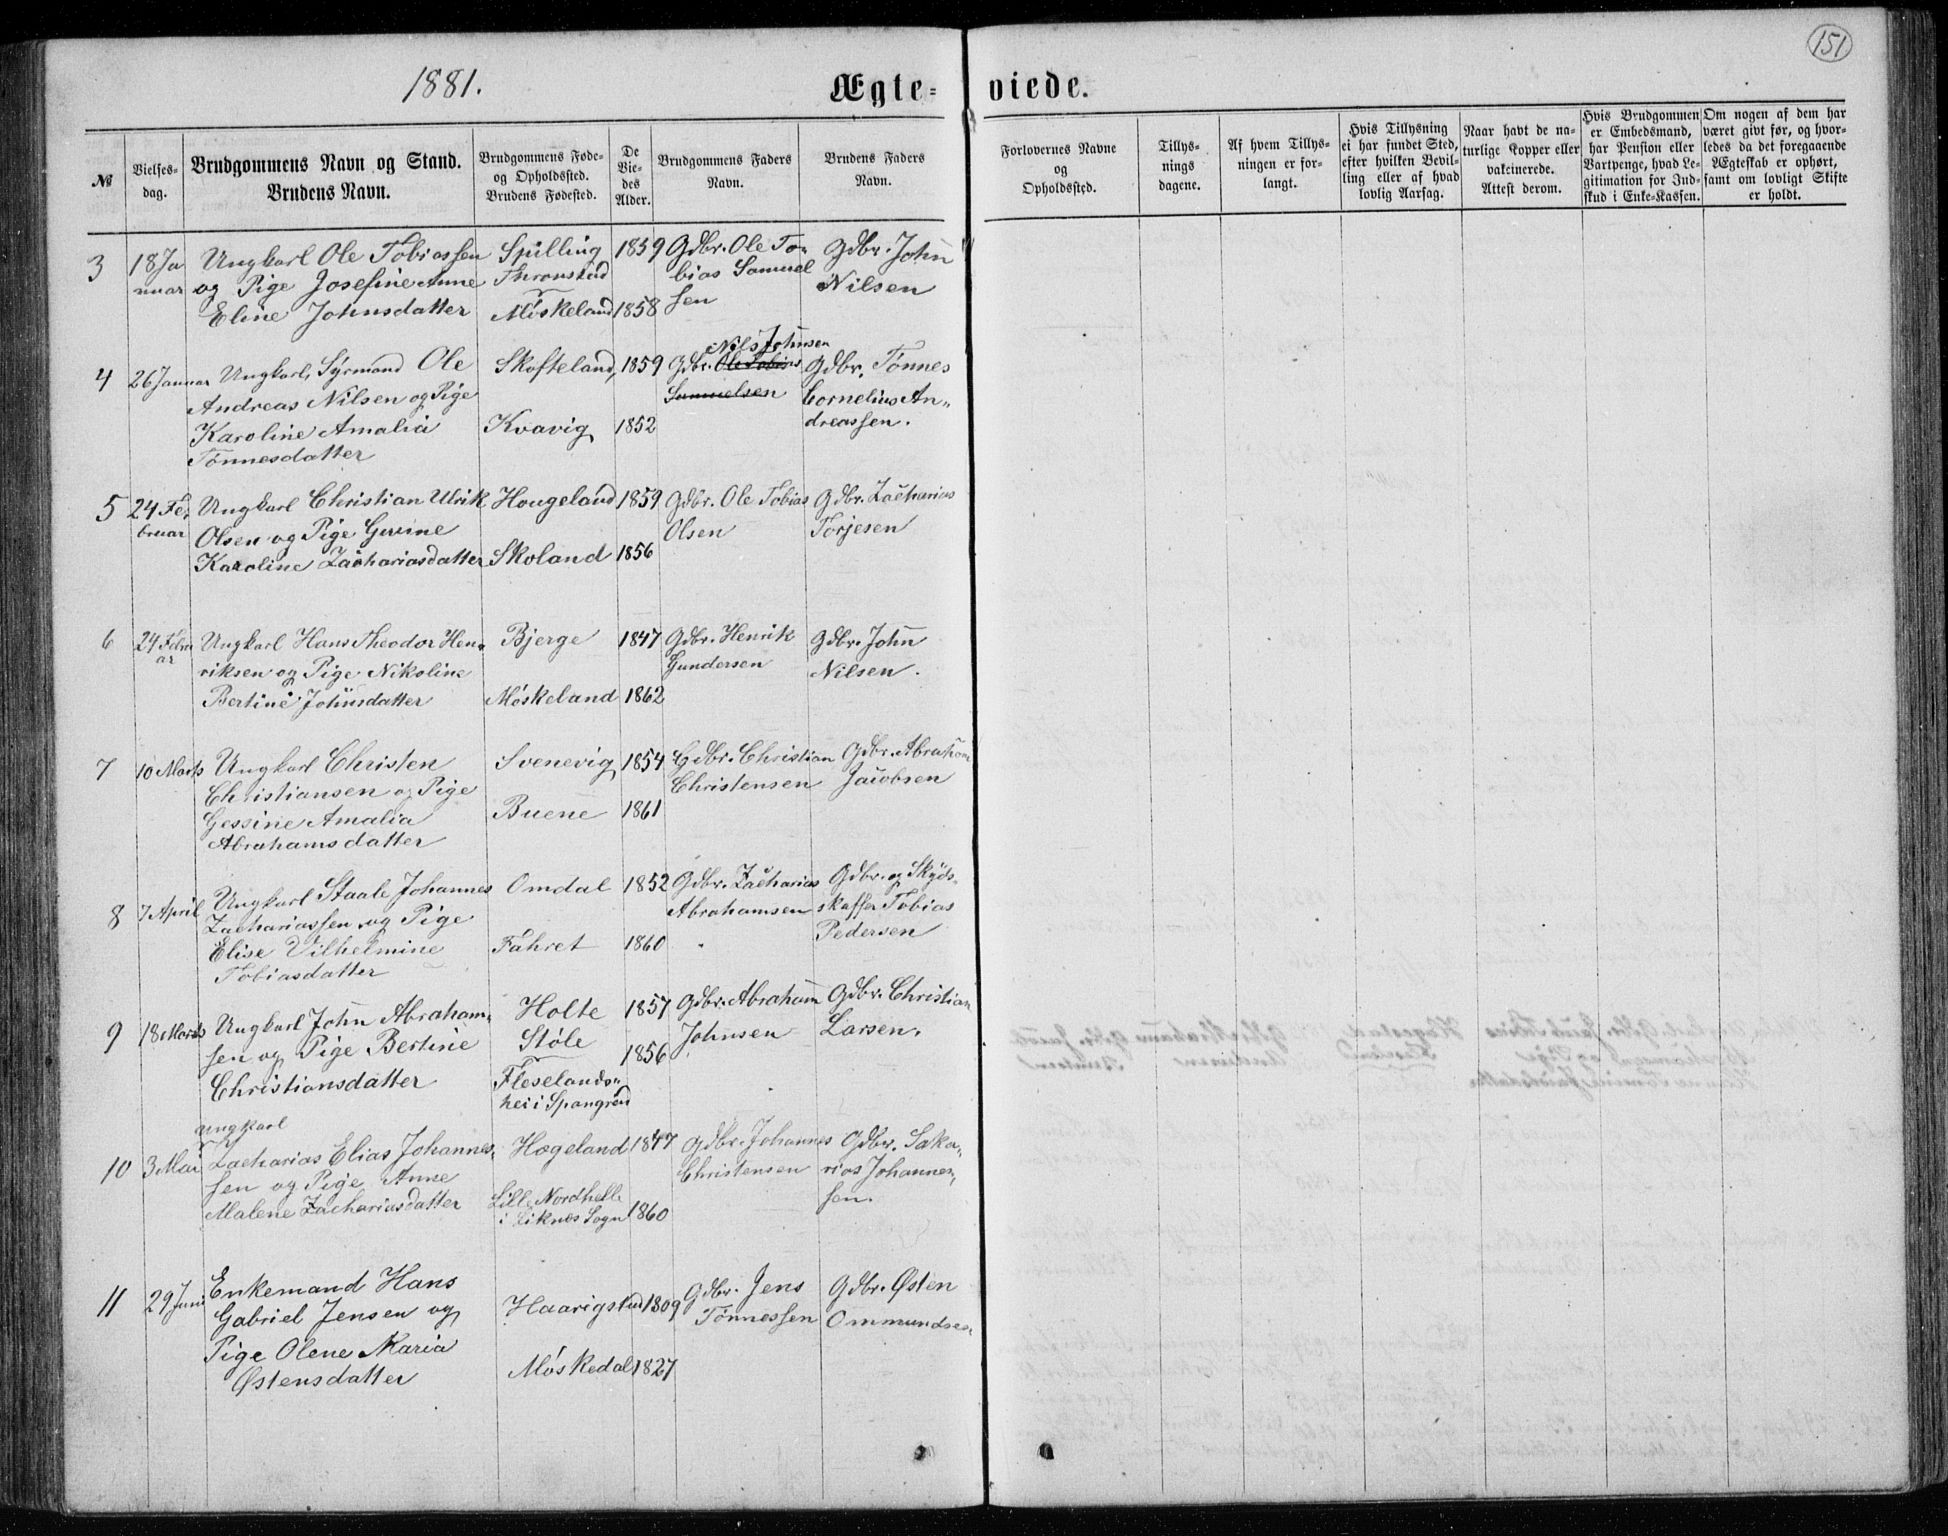 151
1881.
Ægte= viede.
№
Vielses-
dag.
Brudgommens Navn og Stand.
Brudens Navn.
Brudgommens Føde-
og Opholdssted.
Brudens Fødested.
De
Vie-
des
Alder.
Brudgommens Faders
Navn.
Brudens Faders
Navn.
Forlovernes Navne
og
Opholdssted.
Tillys-
nings
dagene.
Af hvem Tillys-
ningen er for-
langt.
Hvis Tillysning
ei har fundet Sted,
efter hvilken Bevil-
ling eller af hvad
lovlig Aarsag.
Naar havt de na-
turlige Kopper eller
vakcinerede.
Attest derom.
Hvis Brudgommen
er Embedsmand,
har Pension eller
Vartpenge, hvad Le-
gitimation for Ind-
skud i Enke-Kassen.
Om nogen af dem har
været givt før, og hvor-
ledes da det foregaaende
Ægteskab er ophørt,
samt om lovligt Skifte
er holdt.
3
18 Ja
nuar
Ungkarl Ole Tobiassen
og Pige Josefine Anne
Eline Johnsdatter
Spilling
Thronstad
Møskeland
1859
1858
Gdbr. Ole To-
bias Samuel
sen
Gdbr. John
Nilsen
4
26 Januar
Ungkarl, Syrmand Ole
Andreas Nilsen og Pige
Karoline Amalia
Tønnesdatter
Skofteland,
Kvavig
1859
1852
Nils Johnsen
Gdbr. Ole Tobias
Samuelsen
Gdbr. Tønnes
Cornelius An-
dreassen.
5
24 Fe-
bruar
Ungkarl Christian Ulrik
Olsen og Pige Gurine
Karoline Zachariasdatter
Hougeland
Skoland
1859
1856
Gdbr. Ole Tobias
Olsen
Gdbr. Zacharias
Torjesen
6
24 Febru
ar
Ungkarl Hans Theodor Hen-
riksen og Pige Nikoline
Bertine Johnsdatter
Bjerge
Møskeland
1847
1862
Gdbr. Henrik
Gundersen
Gdbr. John
Nilsen.
7
10 Marts
Ungkarl Christen
Christiansen og Pige
Gessine Amalia
Abrahamsdatter
Svenevig
Buene
1854
1861
Gdbr. Christian
Christensen
Gdbr. Abraham
Jacobsen
8
7 April
Ungkarl Staale Johannes
Zachariassen og Pige
Elise Vilhelmine
Tobiasdatter
Omdal
Fahret
1852
1860
Gdbr. Zacharias
Abrahamsen
Gdbr. og Skyds-
skaffer Tobias
Pedersen
9
18 Marts
Ungkarl John Abraham-
sen og Pige Bertine
Christiansdatter
Holte
Støle
Fleselands-
hei i Spangred
1857
1856
Gdbr. Abraham
Johnsen
Gdbr. Christian
Larsen.
10
3 Mai
Ungkarl
Zacharias Elias Johannes-
sen og Pige Anne
Malene Zachariasdatter
Hægeland
Lille Nordhelle
i Liknes Sogn
1847
1860
Gdbr. Johannes
Christensen
Gdbr. Saka-
rias Johannes-
sen.
11
29 Juni
Enkemand Hans
Gabriel Jensen og
Pige Olene Maria
Østensdatter
Haarigstad
Møskedal
1809
1827
Gdbr. Jens
Tønnessen
Gdbr. Østen
Ommundsen